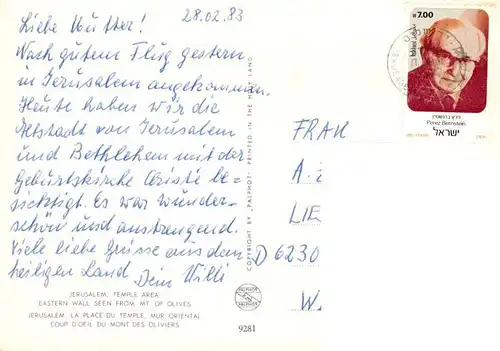 28.02.83
Liebe Mutter!
Nach gutem Flug gestern
in Jerusalem angekommen.
Heute haben wir die
Altstadt von Jerusalem
und Bethlehem mit der
Geburtskirche Christi be-
sichtigt. Es war wunder-
schön und anstrengend.
Viele liebe Grüsse aus dem
heiligen Land
Dein Willi
JERUSALEM, TEMPLE AREA
EASTERN WALL SEEN FROM MT OF OLIVES
JERUSALEM, LA PLACE DU TEMPLE, MUR ORIENTAL
COUP D'OEIL DU MONT DES OLIVIERS
9281
COPYRIGHT BY "PALPHOT" PRINTED IN THE HOLY LAND
PALPHOT
7.00
פרץ ברנשטיין
Perez Bernstein
ישראל
FRAU
A
LIE
D 6230
W.